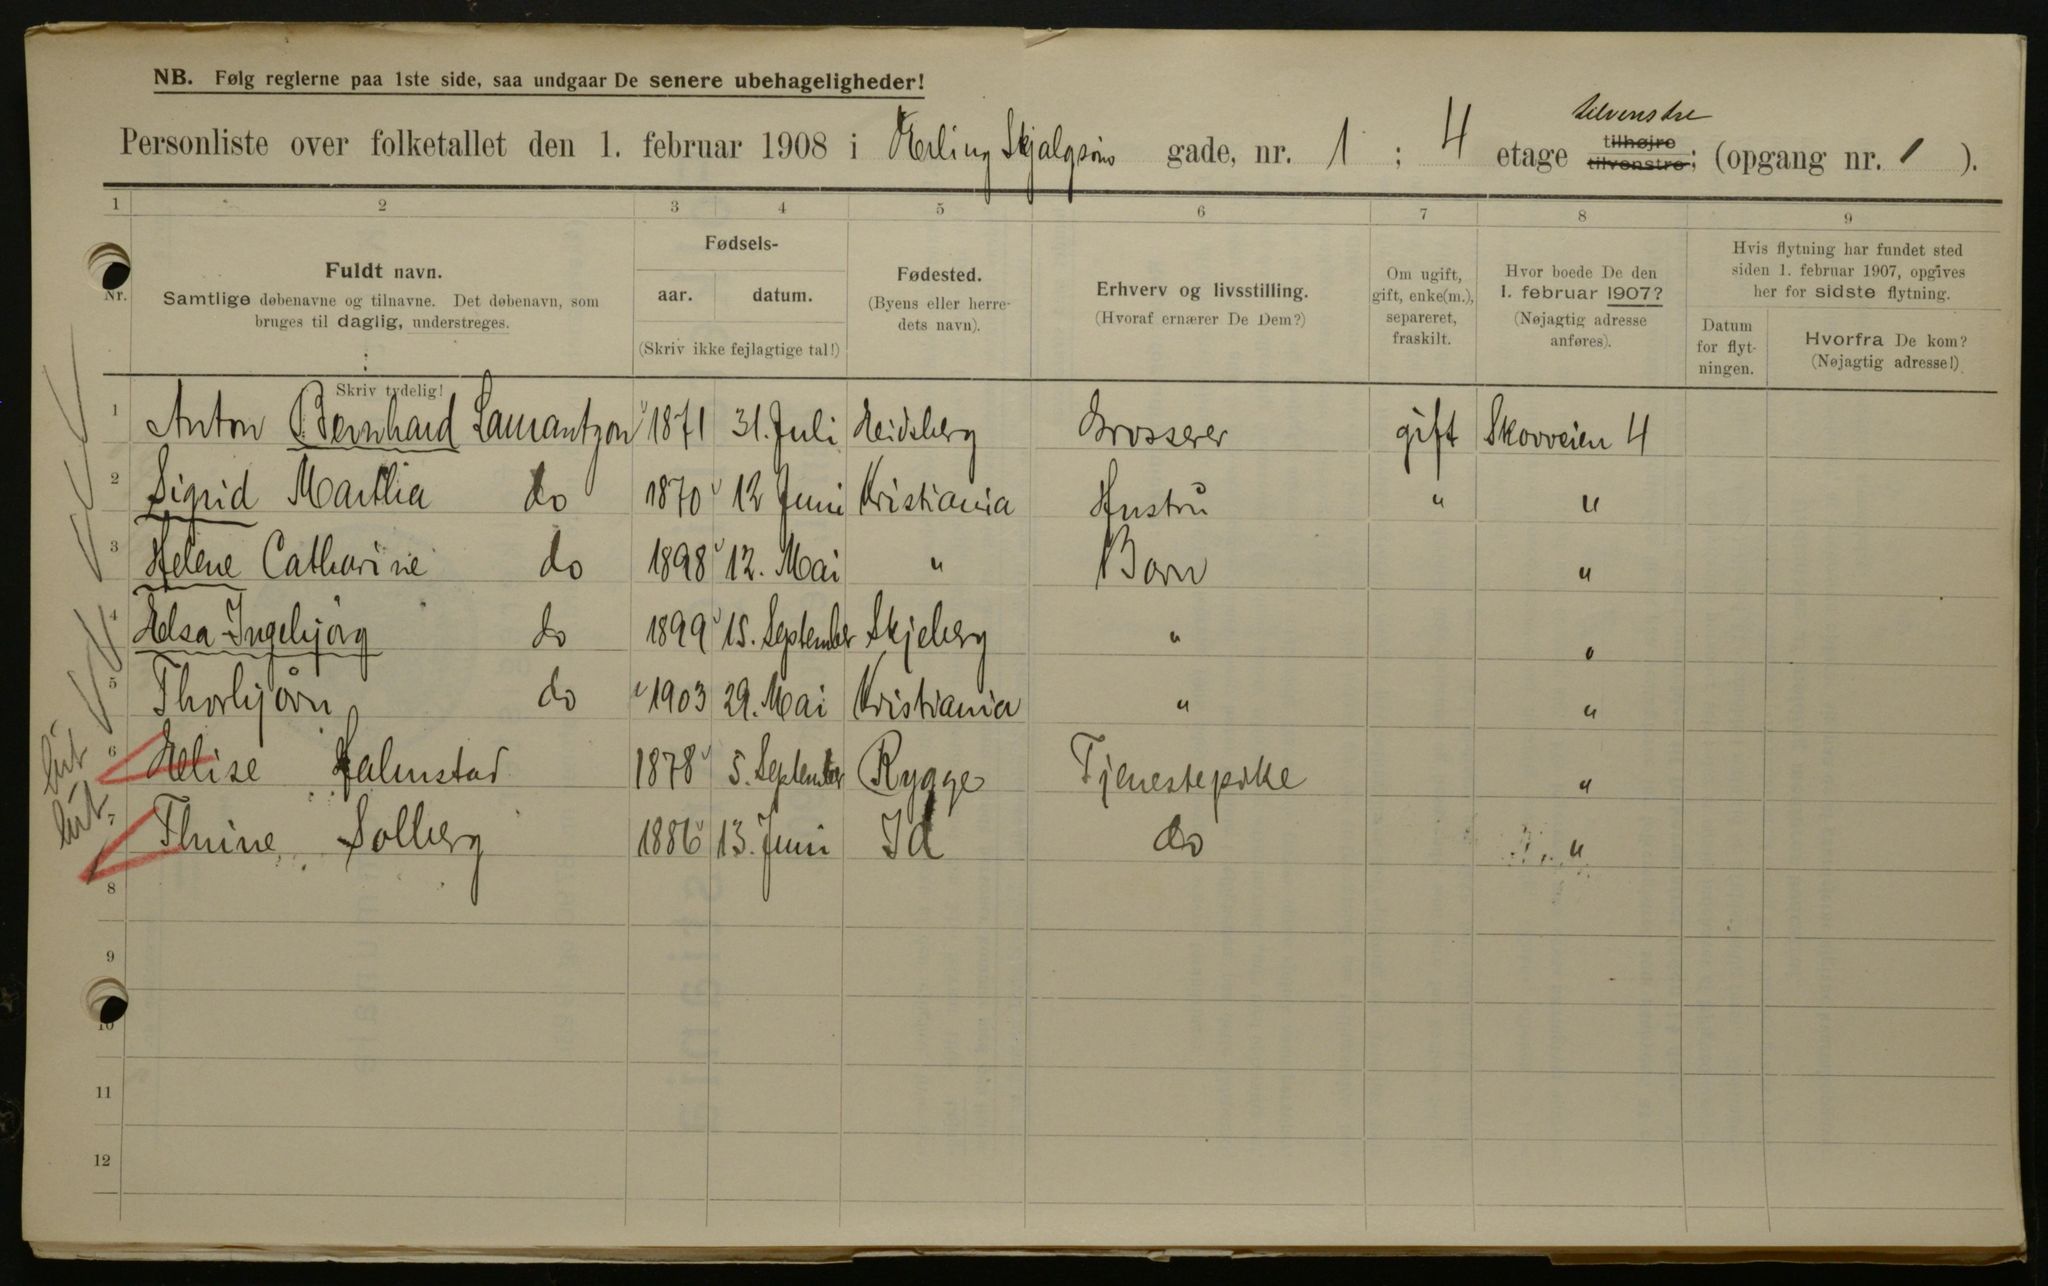 NB. Følg reglerne paa 1ste side, saa undgaar De senere ubehageligheder!
tilvenstre
Personliste over folketallet den 1. februar 1908 i Erling Skjalgsøns gade, nr. 1 ; 4 etage tilhøjre tilvenstre; (opgang nr. 1 ).
1 2 3 4 5 6 7 8 9
Nr. Fuldt navn. Samtlige døbenavne og tilnavne. Det døbenavn, som bruges til daglig, understreges. Skriv tydelig!
Fødsels- aar. datum. (Skriv ikke fejlagtige tal!)
Fødested. (Byens eller herredets navn).
Erhverv og livsstilling. (Hvoraf ernærer De Dem?)
Om ugift, gift, enke(m.), separeret, fraskilt.
Hvor boede De den 1. februar 1907? (Nøjagtig adresse anføres).
Hvis flytning har fundet sted siden 1. februar 1907, opgives her for sidste flytning.
Datum for flytningen.
Hvorfra De kom? (Nøjagtig adresse!)
1 Anton Bernhard Laurantzon 1871 31. Juli Eidsberg Grosserer gift Skovveien 4
2 Sigrid Marthia do 1870 12 Juni Kristiania Hustru " "
3 Helene Catharine do 1898 12. Mai " Barn "
4 Elsa Ingebjørg do 1899 15. September Skjeberg " "
5 Thorbjørn do 1903 29. Mai Kristiania " "
6 Elise Halmstad 1878 5. September Rygge Tjenestepike "
7 Thine Solberg 1886 13. Juni Id do "
8
9
10
11
12